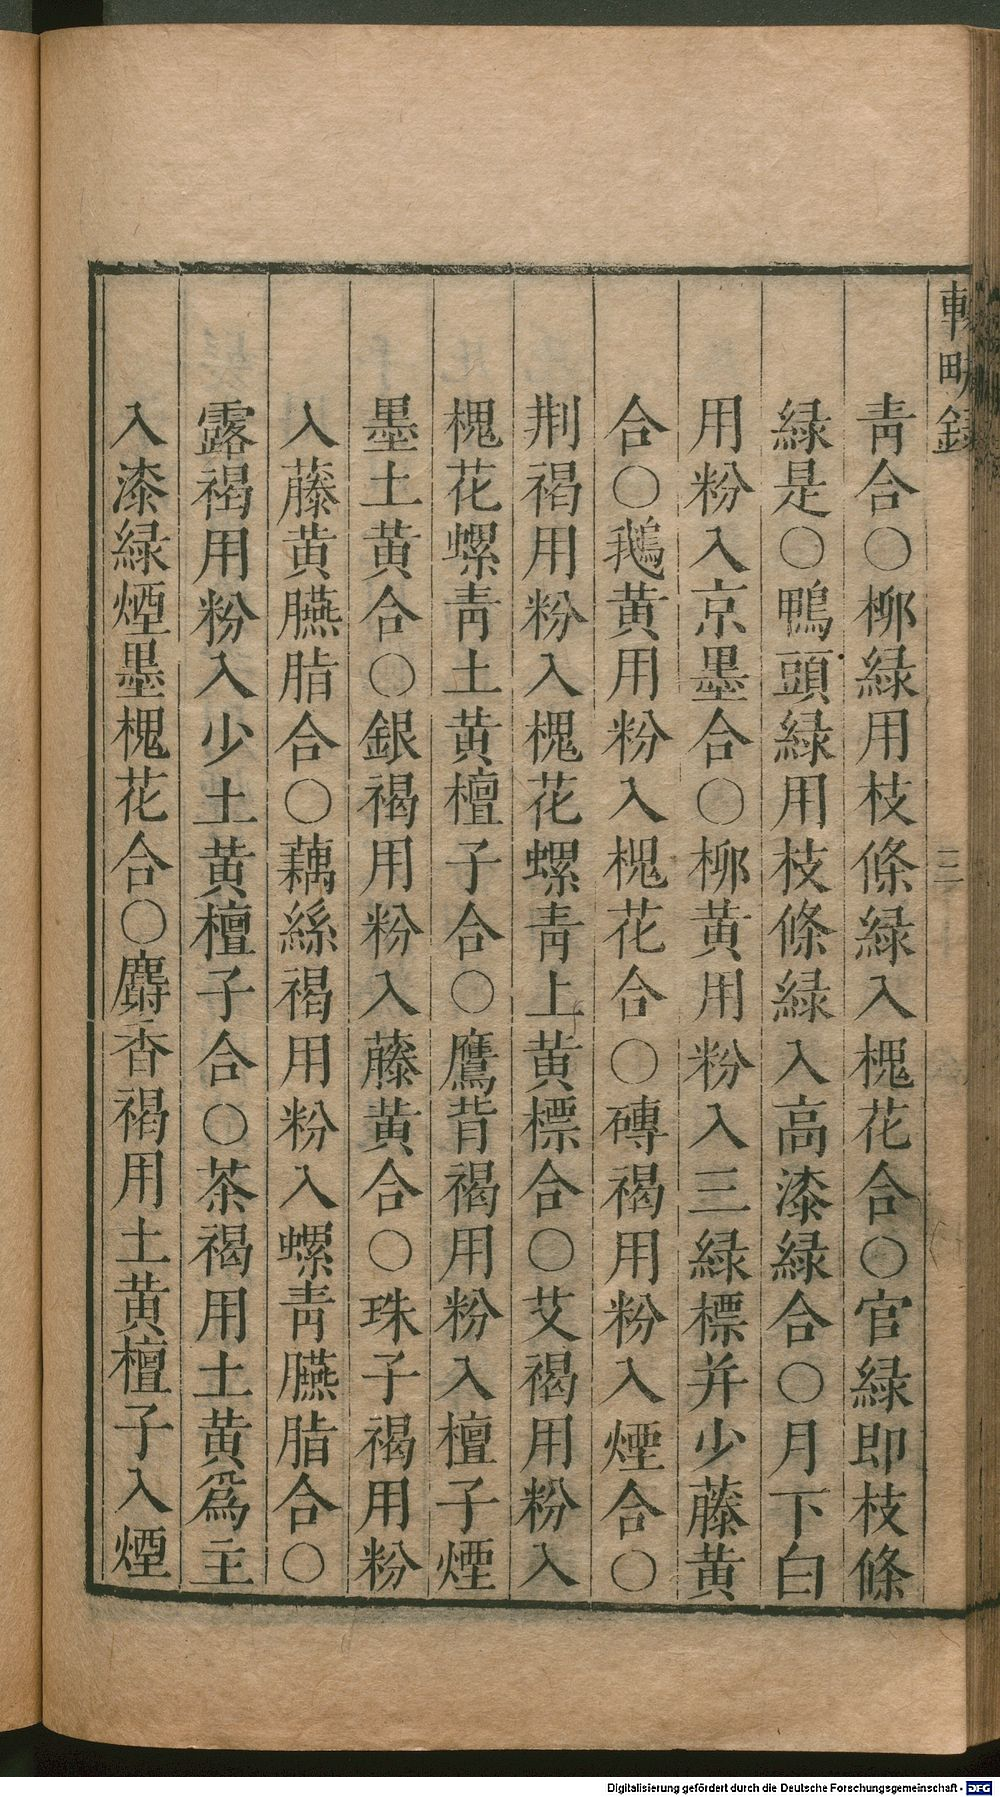 輟畊錄
三
青合○柳緑用枝條緑入槐花合○官緑即枝條
緑是○鴨頭緑用枝條緑入高漆緑合○月下白
用粉入京墨合○柳黄用粉入三緑標并少藤黄
合○鵝黄用粉入槐花合○磚褐用粉入煙合○
荆褐用粉入槐花螺青上黄標合○艾褐用粉入
槐花螺青土黄檀子合○鷹背褐用粉入檀子煙
墨土黄合○銀褐用粉入藤黄合○珠子褐用粉
入藤黄臙脂合○藕絲褐用粉入螺青臙脂合○
露褐用粉入少土黄檀子合○茶褐用土黄爲主
入漆緑煙墨槐花合○麝香褐用土黄檀子入煙
Digitalisierung gefördert durch die Deutsche Forschungsgemeinschaft - DFG